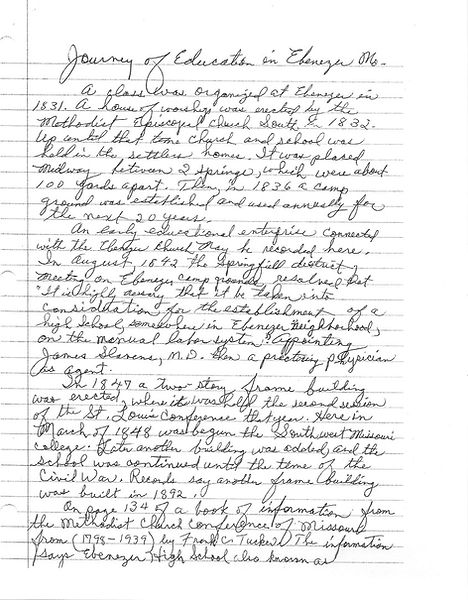 Journey of Education in Ebenezer Mo.
A class was organized at Ebenezer in
1831. A house of worship was erected by the
Methodist Episcopal Church South in 1832.
Up until that time church and school was
held in the settlers homes. It was placed
midway between 2 springs, which were about
100 yards apart. Then, in 1836 a camp
ground was established and used annually for
the next 20 years.
An early educational enterprise connected
with the Ebenezer Church may be recorded here.
In August, 1842 the Springfield district
meeting on Ebenezer camp grounds, resolved that
"It is highly that it be taken into
consideration for the establishment of a
high school, somewhere in Ebenezer neighborhood,
on the manual labor system". Appointing
James Slavens, M.D. then a practicing physician
as agent.
In 1847 a two story frame building
was erected, where it was held the second session
of the St. Louis Conference that year. Here in
March of 1848 was begun the Southwest Missouri
College. Later another building was added, and the
school was continued until the time of the
Civil War. Records say another frame building
was built in 1892.
On page 134 of a book of information from
the Methodist Church Conference of Missouri
from (1798-1939) by Frank C. Tucker. The information
says Ebenezer High School also known as